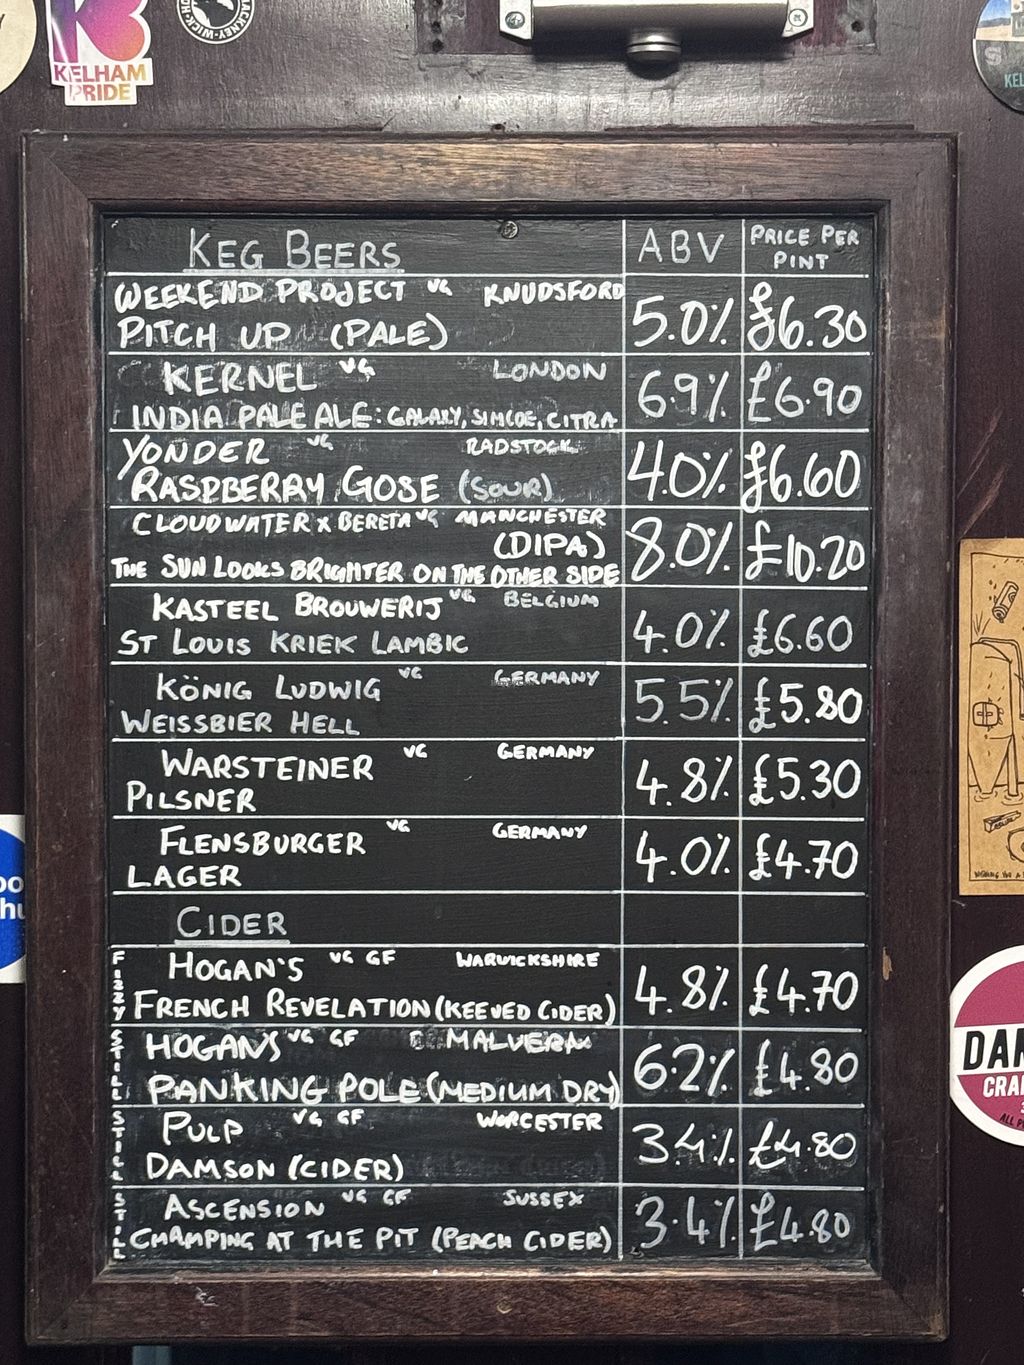 KELHAM
PRIDE
KEG BEERS ABV PRICE PER PINT
WEEKEND PROJECT VG KNUDSFORD
PITCH UP (PALE) 5.0% £6.30
KERNEL VG LONDON
INDIA PALE ALE: GALAXY, SIMCOE, CITRA 6.9% £6.90
YONDER VG RADSTOCK
RASPBERRY GOSE (SOUR) 4.0% £6.60
CLOUDWATER x BERETA VG MANCHESTER
(DIPA)
THE SUN LOOKS BRIGHTER ON THE OTHER SIDE 8.0% £10.20
KASTEEL BROUWERIJ VG BELGIUM
ST LOUIS KRIEK LAMBIC 4.0% £6.60
KÖNIG LUDWIG VG GERMANY
WEISSBIER HELL 5.5% £5.80
WARSTEINER VG GERMANY
PILSNER 4.8% £5.30
FLENSBURGER VG GERMANY
LAGER 4.0% £4.70
CIDER
FIZZY HOGAN'S VG GF WARWICKSHIRE
FRENCH REVELATION (KEEVED CIDER) 4.8% £4.70
STILL HOGANS VG GF MALVERN
PANKING POLE (MEDIUM DRY) 6.2% £4.80
STILL PULP VG GF WORCESTER
DAMSON (CIDER) 3.4% £4.80
STILL ASCENSION VG GF SUSSEX
CHAMPING AT THE PIT (PEACH CIDER) 3.4% £4.80